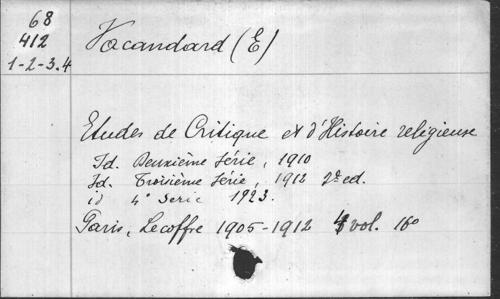 68
412
1-2-3.4
Vacandard (E)
Etudes de Critique et d'Histoire religieuse
Id. Deuxième Série, 1910
Id. Troisième Série, 1912 2e ed.
id 4e Serie 1923.
Paris, Lecoffre 1905-1912 4 vol. 16o